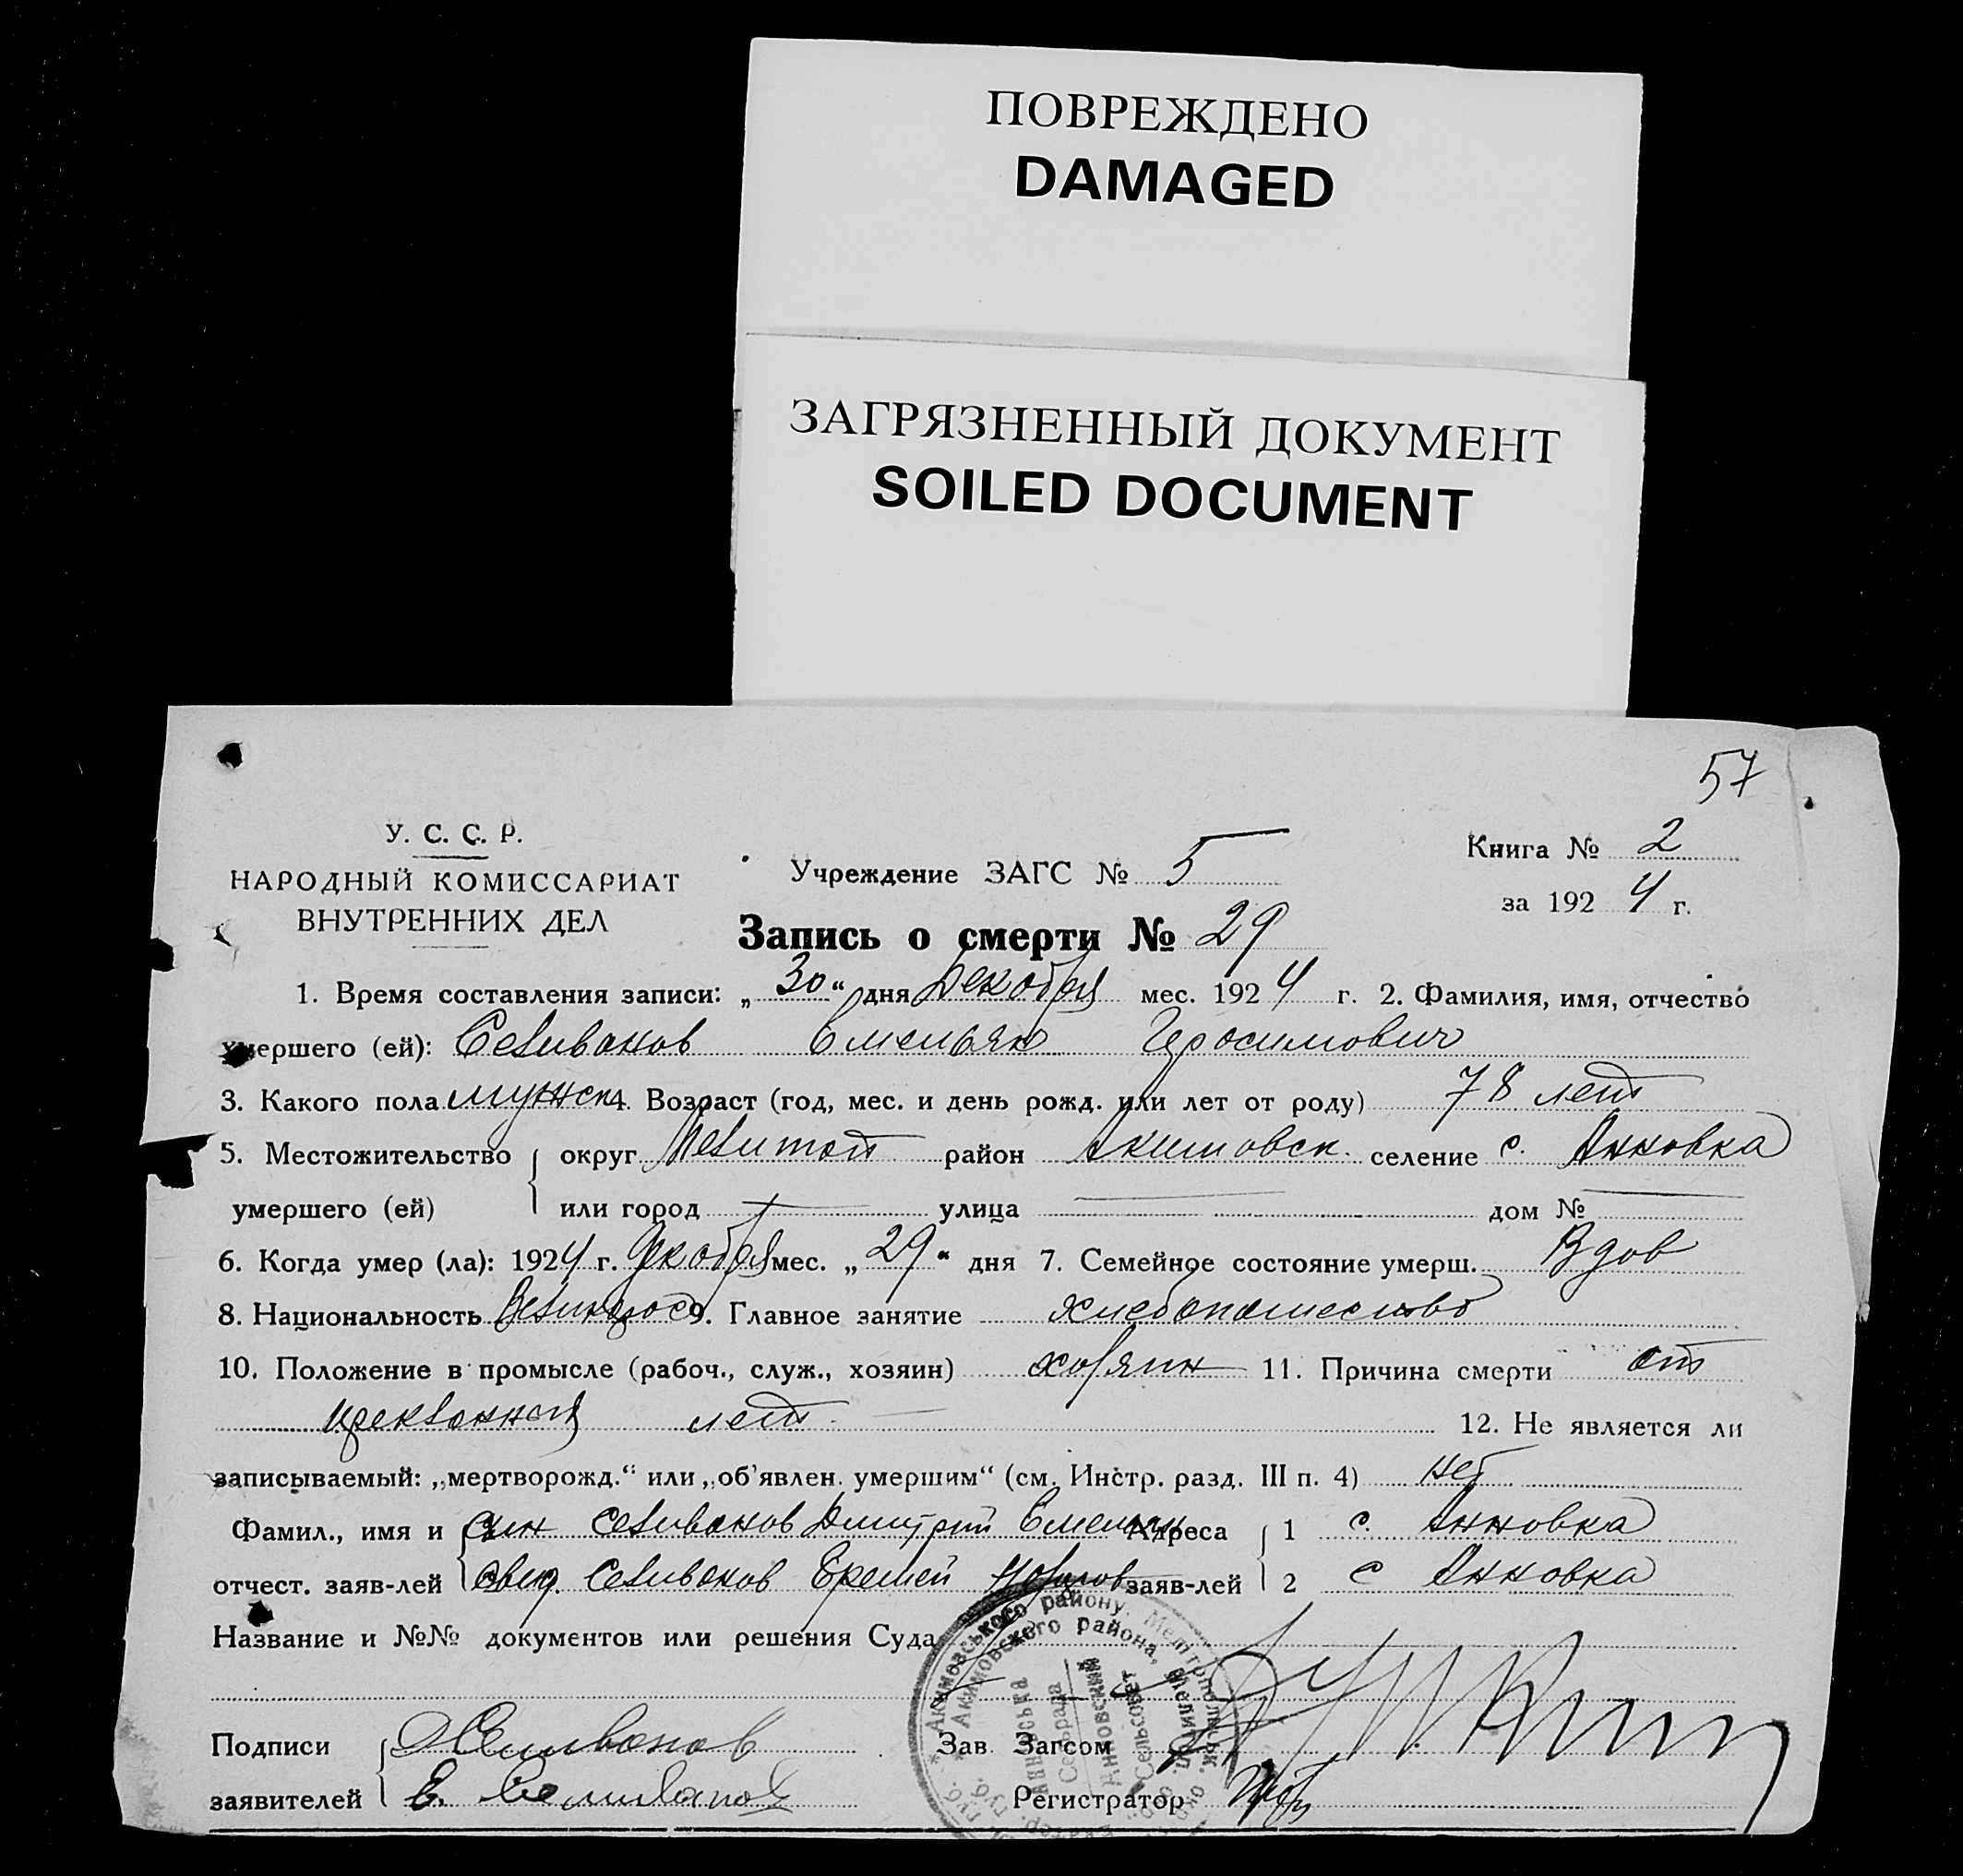 ПОВРЕЖДЕНО
DAMAGED
ЗАГРЯЗНЕННЫЙ ДОКУМЕНТ
SOILED DOCUMENT
57
У. С. С. Р.
НАРОДНЫЙ КОМИССАРИАТ
ВНУТРЕННИХ ДЕЛ
Учреждение ЗАГС № 5
Книга № 2
за 1924 г.
Запись о смерти № 29
1. Время составления записи: „30“ дня Декабря мес. 1924 г. 2. Фамилия, имя, отчество
умершего (ей): Селиванов Емельян Герасимович
3. Какого пола мужск 4. Возраст (год, мес. и день рожд. или лет от роду) 78 лет
5. Местожительство округ Мелитоп район Акимовск. селение с. Анновка
умершего (ей) или город улица дом №
6. Когда умер (ла): 1924 г. Декабря мес. „29“ дня 7. Семейное состояние умерш. Вдов
8. Национальность Великорос 9. Главное занятие хлебопашество
10. Положение в промысле (рабоч., служ., хозяин) хозяин 11. Причина смерти от
преклонных лет. 12. Не является ли
записываемый: „мертворожд.“ или „об’явлен. умершим“ (см. Инстр. разд. III п. 4) нет
Фамил., имя и сын Селиванов Дмитрий Емельян Адреса 1 с. Анновка
отчест. заяв-лей свид. Селиванов Еремей заяв-лей 2 с Анновка
Название и №№ документов или решения Суда
Акимовського району. Мелітопольськ. окр.
Акимовского района, Мелитоп.
Аннівська Сельрада
Анновский Сельсовет
Подписи Селиванов Зав. Загсом
заявителей Е. Селиванов Регистратор